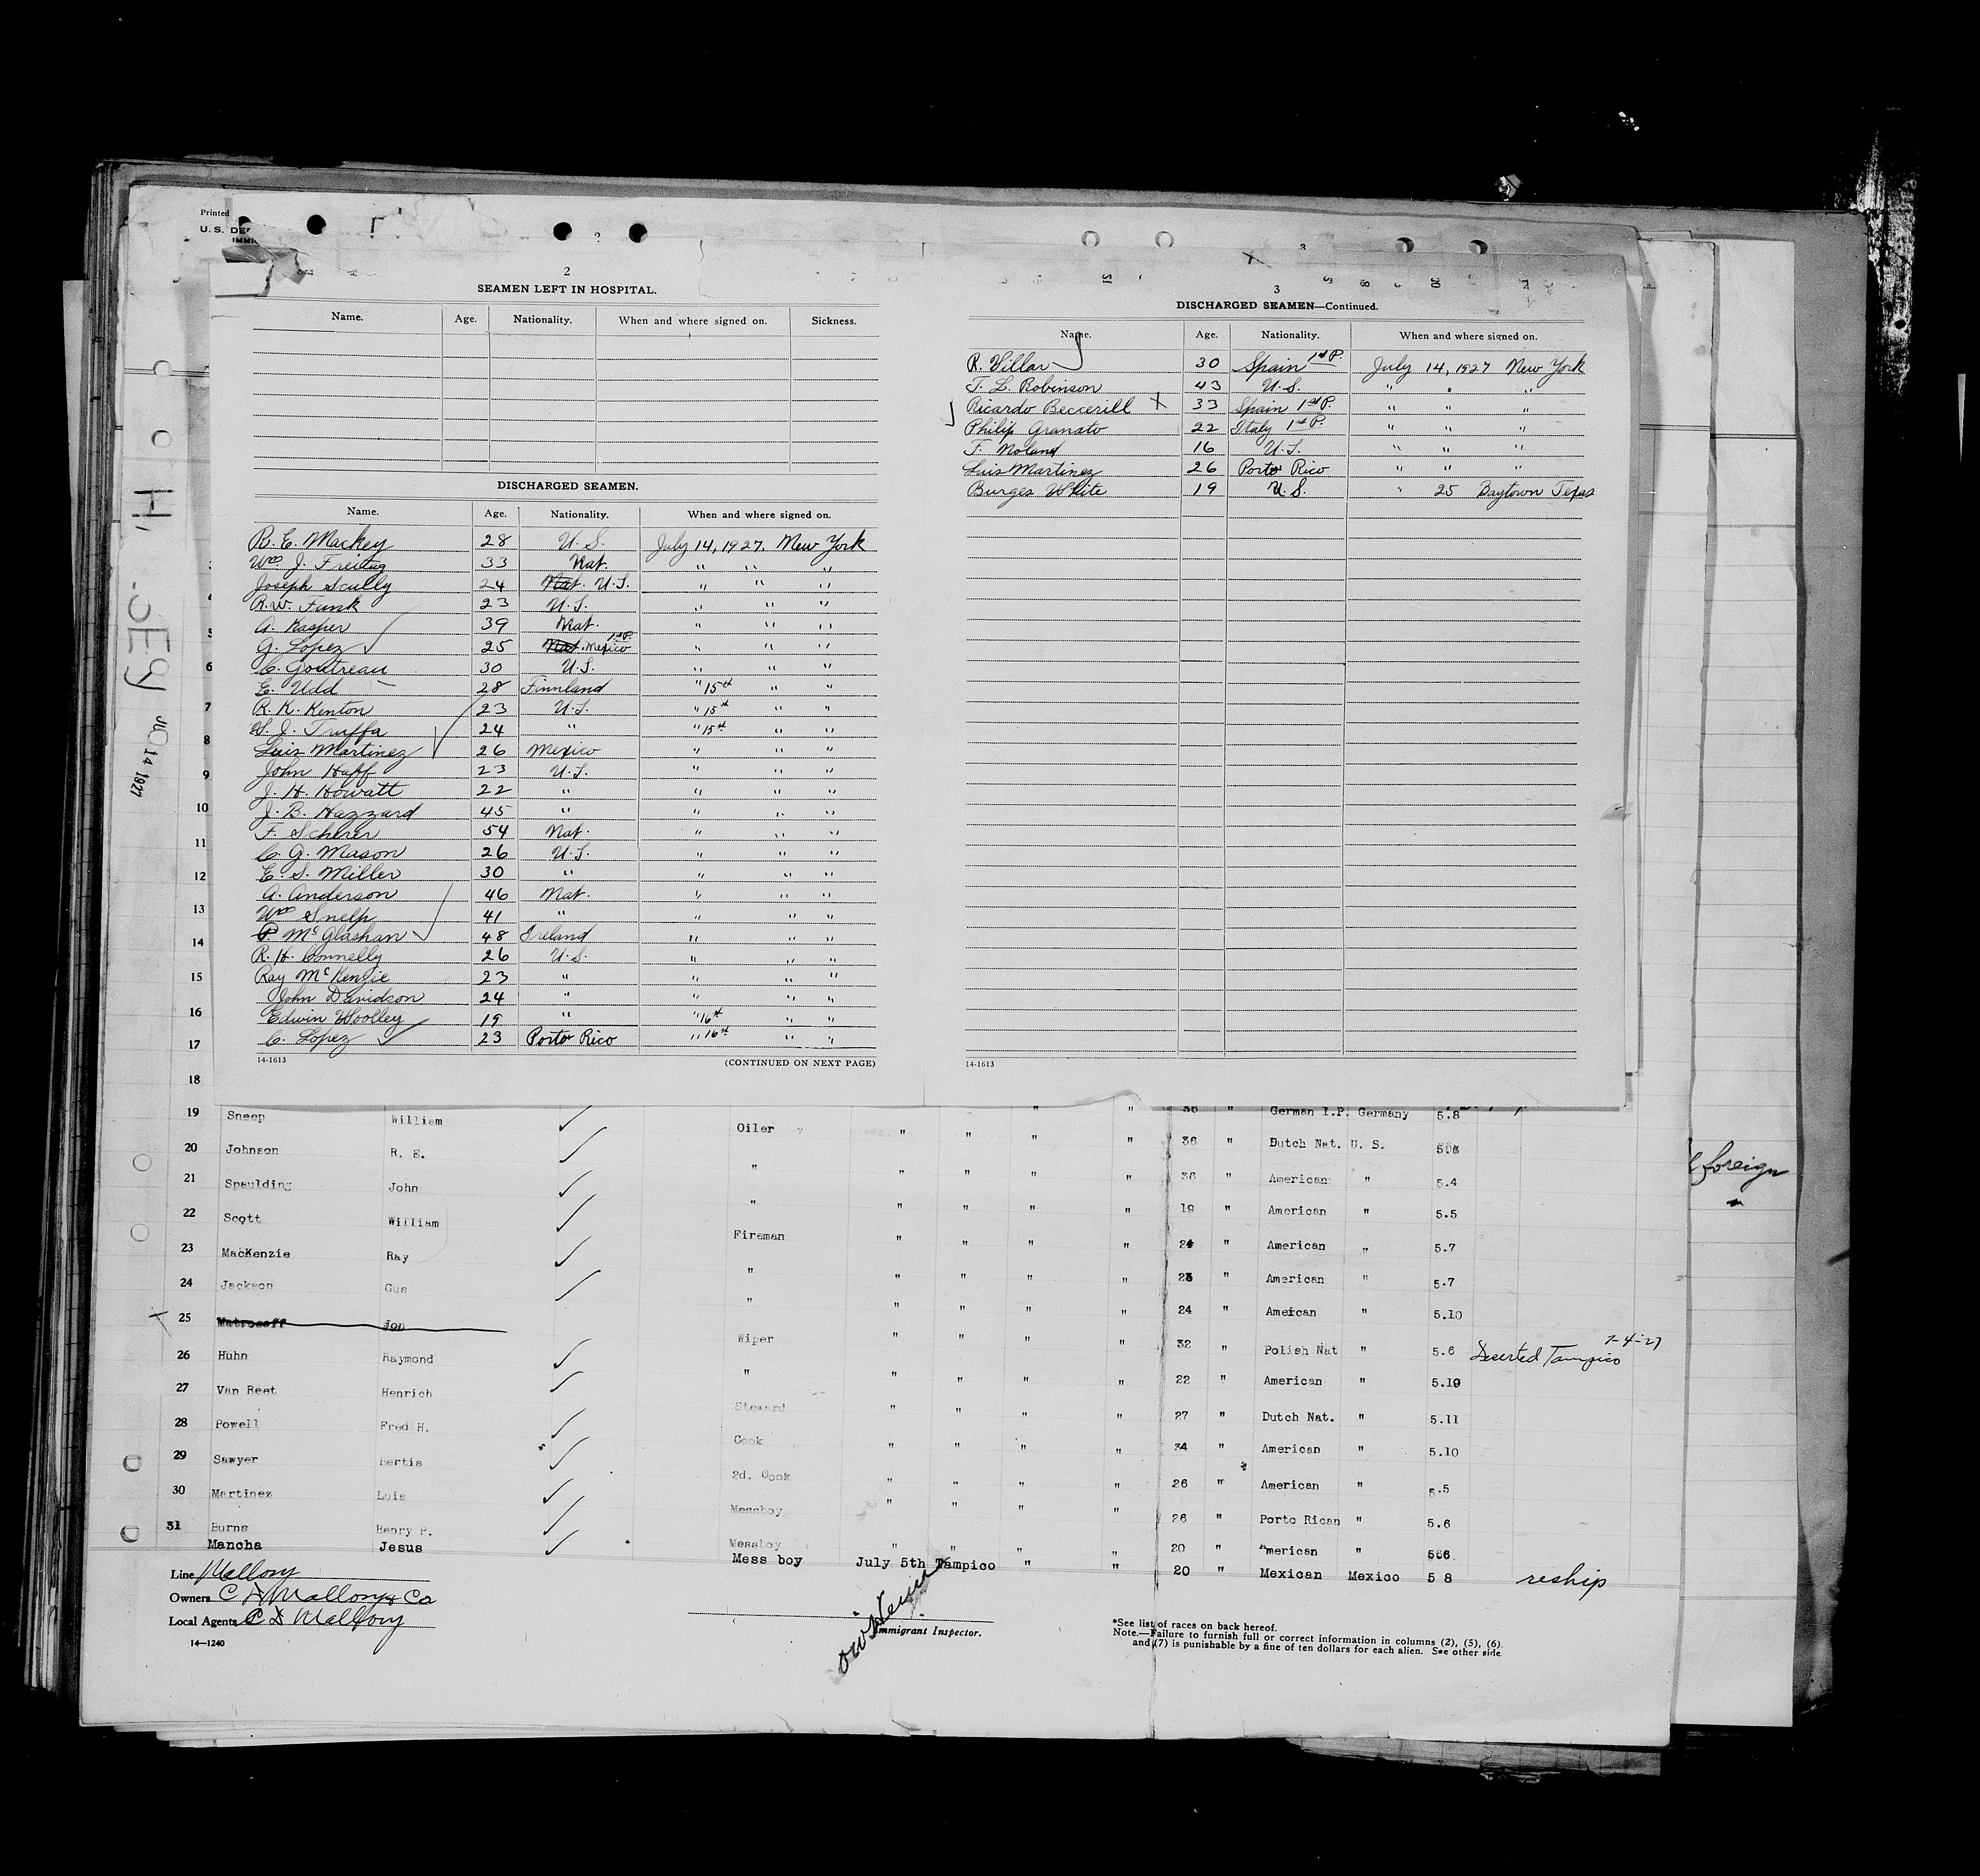 Printed
U.S. DE
IMMI
2
SEAMEN LEFT IN HOSPITAL.
Name. Age. Nationality. When and where signed on. Sickness.
DISCHARGED SEAMEN.
Name. Age. Nationality. When and where signed on.
R. E. Mackey 28 U.S. July 14, 1927. New York
Wm J. Freitag 33 Nat. " " "
Joseph Scully 24 Nat. U.S. " " "
R.W. Funk 23 U.S. " " "
A. Kasper 39 Nat. " " "
G. Lopez 25 Nat. Mexico 1st P. " " "
C. Goutreau 30 U.S. " " "
E. Udd 28 Finnland " 15th " "
R. K. Kenton 23 U.S. " 15th " "
S. J. Truffa 24 " " 15th " "
Luis Martinez 26 Mexico " " "
John Huff 23 U.S. " " "
J. H. Howatt 22 " " " "
J. B. Hazzard 45 " " " "
F. Scherer 54 Nat. " " "
C. G. Mason 26 U.S. " " "
E. S. Miller 30 " " " "
A. Anderson 46 Nat. " " "
Wm Snelp 41 " " " "
P. McGlashan 48 Ireland " " "
R. H. Connelly 26 U.S. " " "
Ray McKenzie 23 " " " "
John Davidson 24 " " " "
Edwin Woolley 19 " " 16th " "
C. Lopez 23 Porto Rico " 16th " "
14-1613 (CONTINUED ON NEXT PAGE)
3
3
DISCHARGED SEAMEN—Continued.
Name. Age. Nationality. When and where signed on.
R. Villar 30 Spain 1st P. July 14, 1927 New York
T. L. Robinson 43 U.S. " " "
Ricardo Beccerill X 33 Spain 1st P. " " "
Philip Granato 22 Italy 1st P. " " "
F. Noland 16 U.S. " " "
Luis Martinez 26 Porto Rico " " "
Burges White 19 U.S. " 25 Baytown Texas
14-1613
14 1927
5
6
7
8
9
10
11
12
13
14
15
16
17
18
19 Sneep William Oiler " " " " 36 " German I.P. Germany 5.8
20 Johnson R. E. " " " " " 36 " Dutch Nat. U. S.
21 Spaulding John " " " " " 36 " American " 5.4
22 Scott William Fireman " " " " 19 " American " 5.5
23 MacKenzie Ray " " " " " 24 " American " 5.7
24 Jackson Gus " " " " " 23 " American " 5.7
25 Matrosoff Jon Wiper " " " " 24 " Amercan " 5.10
26 Huhn Raymond " " " " " 32 " Polish Nat " 5.6 Deserted Tampico 7-4-27
27 Van Reet Henrich Steward " " " " 22 " American " 5.10
28 Powell Fred H. Cook " " " " 27 " Dutch Nat. " 5.11
29 Sawyer Bertis 2d. Cook " " " " 34 " American " 5.10
30 Martinez Luis Messboy " " " " 26 " American " 5.5
31 Burns Henry P. Messboy " " " " 26 " Porto Rican " 5.6
20 " "merican " 566
Mancha Jesus Mess boy July 5th Tampico " " 20 " Mexican Mexico 5 8 reship
foreign
Line Mallory
Owners C D Mallory & Co
Local Agents C D Mallory
14—1240
Immigrant Inspector.
*See list of races on back hereof.
Note.—Failure to furnish full or correct information in columns (2), (5), (6)
and (7) is punishable by a fine of ten dollars for each alien. See other side